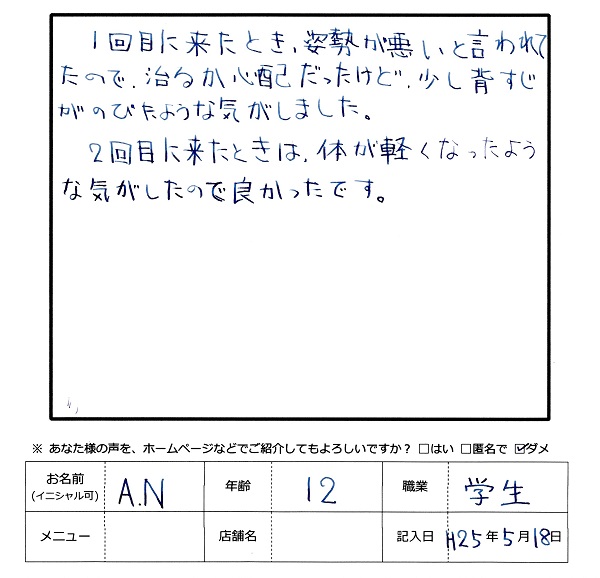 1回目に来たとき、姿勢が悪いと言われて
たので、治るか心配だったけど、少し背すじ
がのびたような気がしました。
2回目に来たときは、体が軽くなったよう
な気がしたので良かったです。
※ あなた様の声を、ホームページなどでご紹介してもよろしいですか? □はい □匿名で ☑ダメ
お名前
(イニシャル可)
A.N
年齢
12
職業
学生
メニュー
店舗名
記入日
H25年5月18日